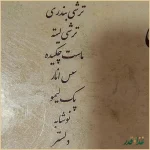 ترشی بندری
ترشی لیته
ماست چکیده
سس انار
پک لیمو
نوشابه
دلستر